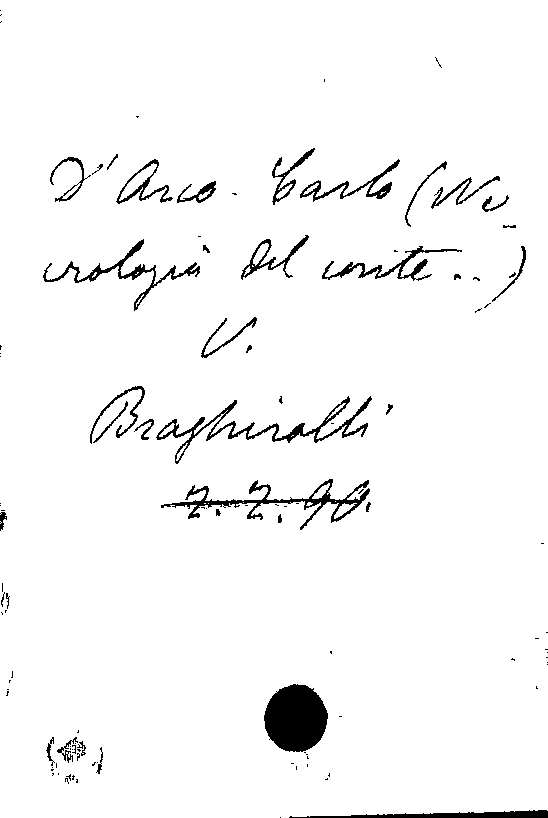 D'Arco Carlo (Ne-
crologia del conte...)
V.
Braghirolli
Z. Z. 90.